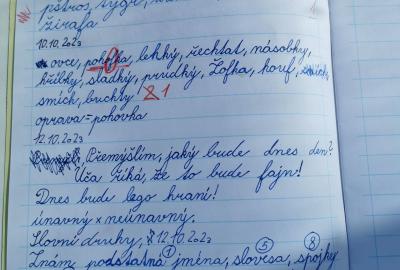 pštros, tygr,
žirafa
10.10.2023
ovce, pohofka, lehký, řechtat, násobky,
hříbky, sladký, prudký, Žofka, houf,
smích, buchty 21
oprava = pohovka
12.10.2023
Přemýšlím, jaký bude dnes den?
Úča říká, že to bude fajn!
Dnes bude lego hraní!
únavný × neúnavný.
Slovní druhy, 12.10.2023
Známe podstatná 1 jména, slovesa 5, spojky 8